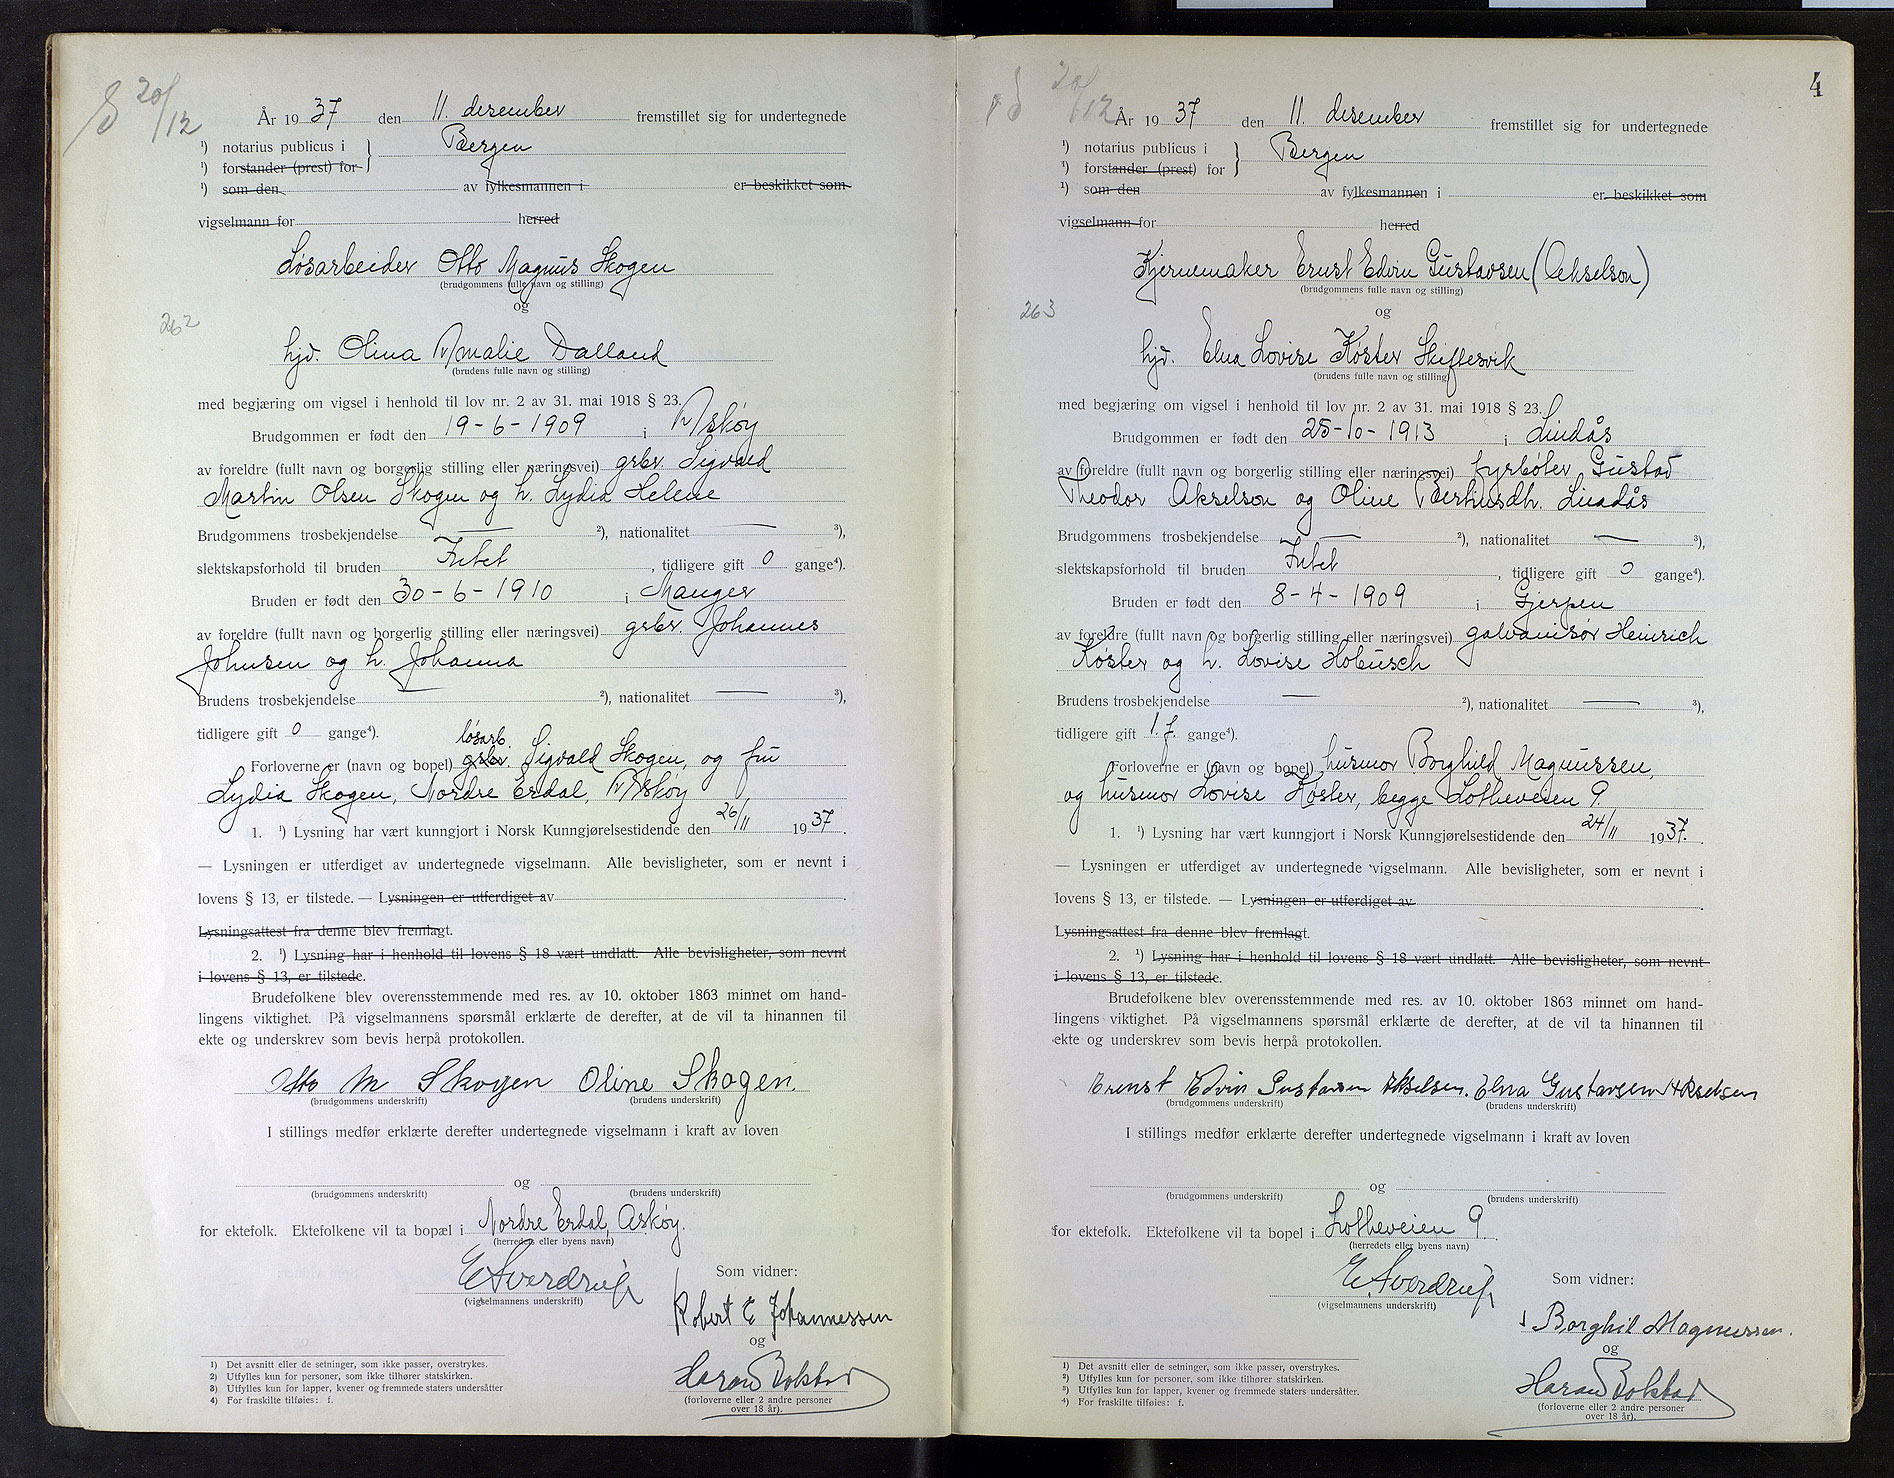 20/12
År 1937 den 11. desember fremstillet sig for undertegnede
¹) notarius publicus i Bergen
¹) forstander (prest) for
¹) som den av fylkesmannen i er beskikket som
vigselmann for herred
Løsarbeider Otto Magnus Skogen
(brudgommens fulle navn og stilling)
og
262
hjd. Olina Amalie Dalland
(brudens fulle navn og stilling)
med begjæring om vigsel i henhold til lov nr. 2 av 31. mai 1918 § 23.
Brudgommen er født den 19-6-1909 i Askøy
av foreldre (fullt navn og borgerlig stilling eller næringsvei) grbr. Sigvald
Martin Olsen Skogen og h. Lydia Helene
Brudgommens trosbekjendelse — ²), nationalitet — ³),
slektskapsforhold til bruden Intet, tidligere gift 0 gange⁴).
Bruden er født den 30-6-1910 i Manger
av foreldre (fullt navn og borgerlig stilling eller næringsvei) grbr. Johannes
Johnsen og h. Johanna
Brudens trosbekjendelse — ²), nationalitet — ³),
tidligere gift 0 gange⁴).
løsarb.
Forloverne er (navn og bopel) grbr. Sigvald Skogen, og fru
Lydia Skogen, Nordre Erdal, Askøy
1. ¹) Lysning har vært kunngjort i Norsk Kunngjørelsestidende den 26/11 1937.
— Lysningen er utferdiget av undertegnede vigselmann. Alle bevisligheter, som er nevnt i
lovens § 13, er tilstede. — Lysningen er utferdiget av
Lysningsattest fra denne blev fremlagt.
2. ¹) Lysning har i henhold til lovens § 18 vært undlatt. Alle bevisligheter, som nevnt
i lovens § 13, er tilstede.
Brudefolkene blev overensstemmende med res. av 10. oktober 1863 minnet om hand-
lingens viktighet. På vigselmannens spørsmål erklærte de derefter, at de vil ta hinannen til
ekte og underskrev som bevis herpå protokollen.
Otto M Skogen Oline Skogen.
(brudgommens underskrift) (brudens underskrift)
I stillings medfør erklærte derefter undertegnede vigselmann i kraft av loven
og
(brudgommens underskrift) (brudens underskrift)
for ektefolk. Ektefolkene vil ta bopæl i Nordre Erdal, Askøy.
(herredets eller byens navn)
E Sverdrup
(vigselmannens underskrift)
Som vidner:
Robert E Johannessen
og
Harald Bolstad
(forloverne eller 2 andre personer
over 18 år).
1) Det avsnitt eller de setninger, som ikke passer, overstrykes.
2) Utfylles kun for personer, som ikke tilhører statskirken.
3) Utfylles kun for lapper, kvener og fremmede staters undersåtter
4) For fraskilte tilføies: f.
4
20/12
År 1937 den 11. desember fremstillet sig for undertegnede
¹) notarius publicus i Bergen
¹) forstander (prest) for
¹) som den av fylkesmannen i er beskikket som
vigselmann for herred
Kjernemaker Ernst Edvin Gustavsen (Akselson)
(brudgommens fulle navn og stilling)
og
263
hjd. Elna Lovise Köster Skiftesvik
(brudens fulle navn og stilling)
med begjæring om vigsel i henhold til lov nr. 2 av 31. mai 1918 § 23.
Brudgommen er født den 25-10-1913 i Lindås
av foreldre (fullt navn og borgerlig stilling eller næringsvei) fyrbøter Gustav
Theodor Akselson og Oline Berhusdh. Lindås
Brudgommens trosbekjendelse — ²), nationalitet — ³),
slektskapsforhold til bruden Intet, tidligere gift 0 gange⁴).
Bruden er født den 8-4-1909 i Gjerpen
av foreldre (fullt navn og borgerlig stilling eller næringsvei) galvanisør Heinrich
Köster og h. Lovise Hobusch
Brudens trosbekjendelse — ²), nationalitet — ³),
tidligere gift 1. f. gange⁴).
Forloverne er (navn og bopel) husmor Borghild Magnussen,
og husmor Lovise Köster, begge Lotheveien 9.
1. ¹) Lysning har vært kunngjort i Norsk Kunngjørelsestidende den 24/11 1937.
— Lysningen er utferdiget av undertegnede vigselmann. Alle bevisligheter, som er nevnt i
lovens § 13, er tilstede. — Lysningen er utferdiget av
Lysningsattest fra denne blev fremlagt.
2. ¹) Lysning har i henhold til lovens § 18 vært undlatt. Alle bevisligheter, som nevnt
i lovens § 13, er tilstede.
Brudefolkene blev overensstemmende med res. av 10. oktober 1863 minnet om hand-
lingens viktighet. På vigselmannens spørsmål erklærte de derefter, at de vil ta hinannen til
ekte og underskrev som bevis herpå protokollen.
Ernst Edvin Gustavsen Akselsen. Elna Gustavsen Akselsen
(brudgommens underskrift) (brudens underskrift)
I stillings medfør erklærte derefter undertegnede vigselmann i kraft av loven
og
(brudgommens underskrift) (brudens underskrift)
for ektefolk. Ektefolkene vil ta bopel i Lotheveien 9.
(herredets eller byens navn)
E. Sverdrup
(vigselmannens underskrift)
Som vidner:
Borghil Magnussen.
og
Harald Bolstad
(forloverne eller 2 andre personer
over 18 år).
¹) Det avsnitt eller de setninger, som ikke passer, overstrykes.
²) Utfylles kun for personer, som ikke tilhører statskirken.
³) Utfylles kun for lapper, kvener og fremmede staters undersåtter.
⁴) For fraskilte tilføies: f.